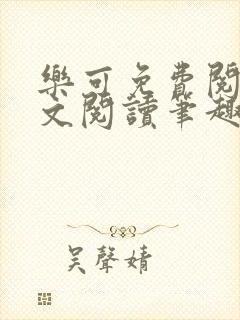 樂可免費閱
文閱讀筆趣
吴聲婧